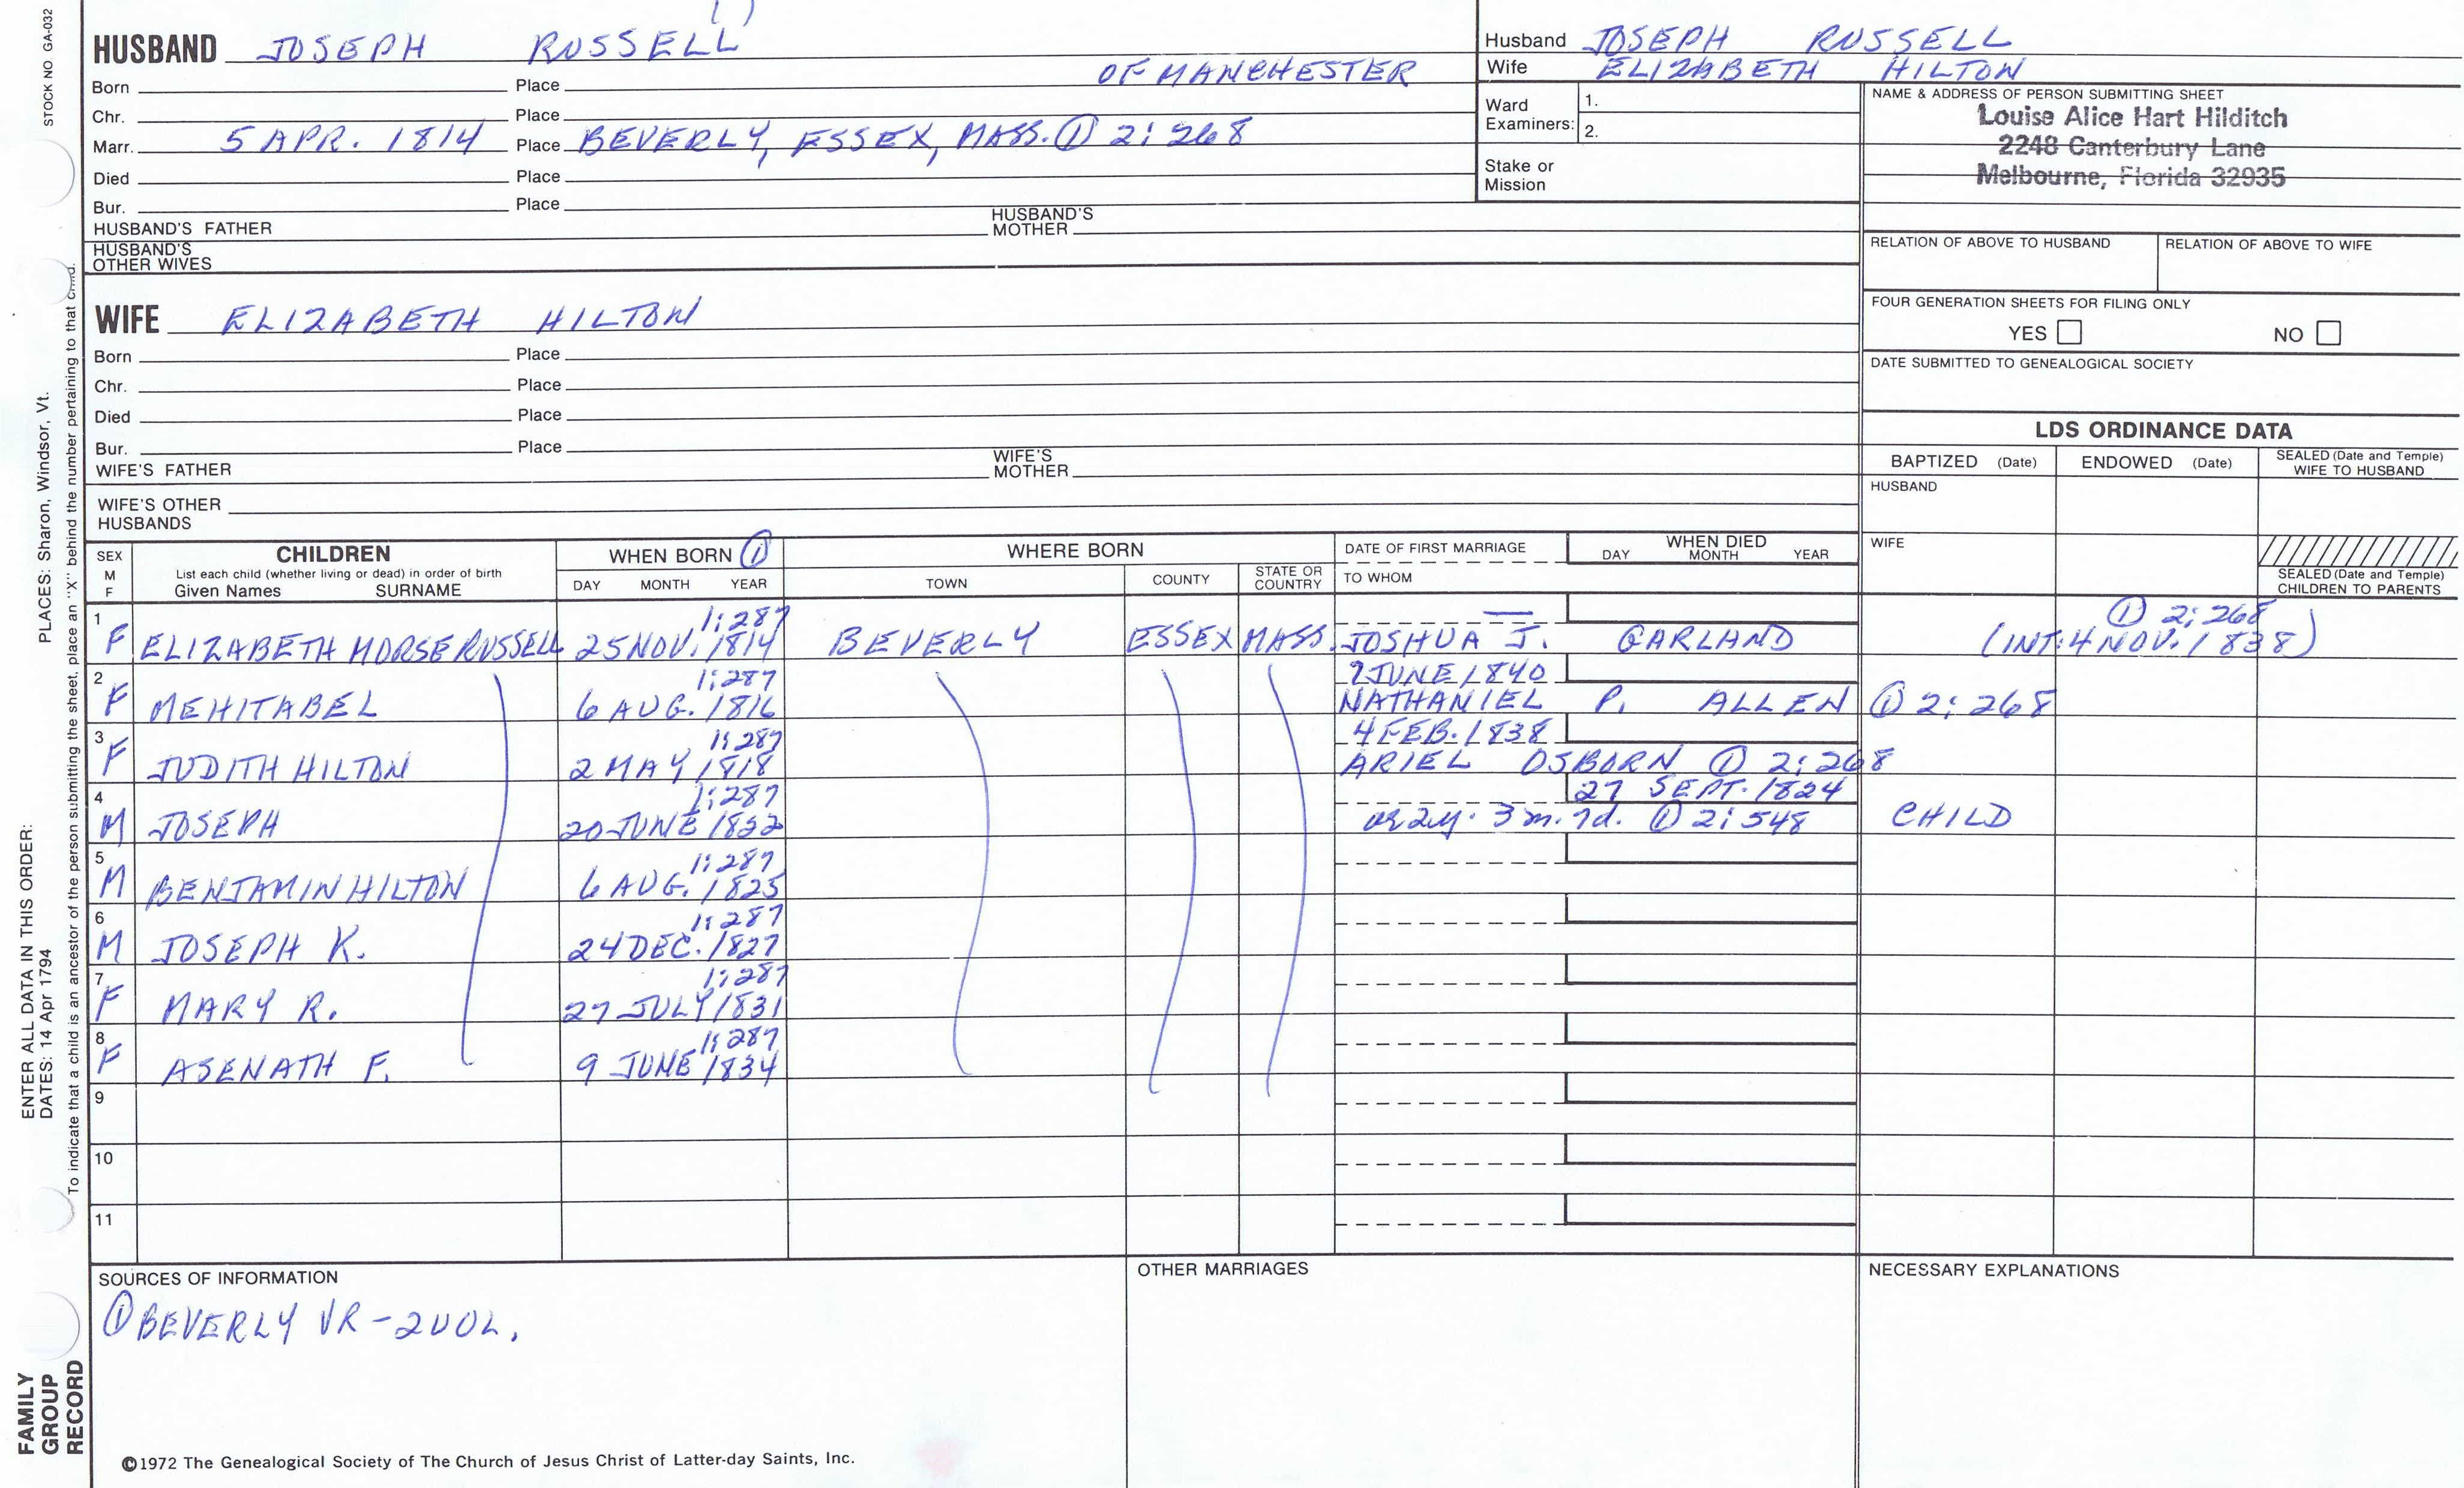 STOCK NO GA-032
HUSBAND JOSEPH RUSSELL
OF MANCHESTER
Born Place
Chr. Place
Marr. 5 APR. 1814 Place BEVERLY, ESSEX, MASS. ① 2:268
Died Place
Bur. Place
HUSBAND'S FATHER
HUSBAND'S MOTHER
HUSBAND'S OTHER WIVES
Husband JOSEPH RUSSELL
Wife ELIZABETH HILTON
Ward Examiners:
1.
2.
Stake or Mission
NAME & ADDRESS OF PERSON SUBMITTING SHEET
Louise Alice Hart Hilditch
2248 Canterbury Lane
Melbourne, Florida 32935
RELATION OF ABOVE TO HUSBAND
RELATION OF ABOVE TO WIFE
FOUR GENERATION SHEETS FOR FILING ONLY
YES NO
DATE SUBMITTED TO GENEALOGICAL SOCIETY
WIFE ELIZABETH HILTON
Born Place
Chr. Place
Died Place
Bur. Place
WIFE'S FATHER
WIFE'S MOTHER
WIFE'S OTHER HUSBANDS
LDS ORDINANCE DATA
BAPTIZED (Date) ENDOWED (Date) SEALED (Date and Temple) WIFE TO HUSBAND
HUSBAND
WIFE
SEALED (Date and Temple) CHILDREN TO PARENTS
SEX M F
CHILDREN
List each child (whether living or dead) in order of birth
Given Names SURNAME
WHEN BORN ①
DAY MONTH YEAR
WHERE BORN
TOWN COUNTY STATE OR COUNTRY
DATE OF FIRST MARRIAGE
TO WHOM
WHEN DIED
DAY MONTH YEAR
1:287 — ① 2:268
1 F ELIZABETH MORSE RUSSELL 25 NOV. 1814 BEVERLY ESSEX MASS. JOSHUA J. GARLAND (INT: 4 NOV. 1838)
1:287 2 JUNE 1840
2 F MEHITABEL 6 AUG. 1816 NATHANIEL P. ALLEN ① 2:268
1:287 4 FEB. 1838
3 F JUDITH HILTON 2 MAY 1818 ARIEL OSBORN ① 2:268
1:287 27 SEPT. 1824
4 M JOSEPH 20 JUNE 1822 ae 2y. 3m. 7d. ① 2:548 CHILD
1:287
5 M BENJAMIN HILTON 6 AUG. 1825
1:287
6 M JOSEPH K. 24 DEC. 1827
1:287
7 F MARY R. 27 JULY 1831
1:287
8 F ASENATH F. 9 JUNE 1834
9
10
11
SOURCES OF INFORMATION
① BEVERLY VR - 2 VOL.
OTHER MARRIAGES
NECESSARY EXPLANATIONS
©1972 The Genealogical Society of The Church of Jesus Christ of Latter-day Saints, Inc.
ENTER ALL DATA IN THIS ORDER:
DATES: 14 Apr 1794 PLACES: Sharon, Windsor, Vt.
To indicate that a child is an ancestor of the person submitting the sheet, place an "X" behind the number pertaining to that child.
FAMILY
GROUP
RECORD